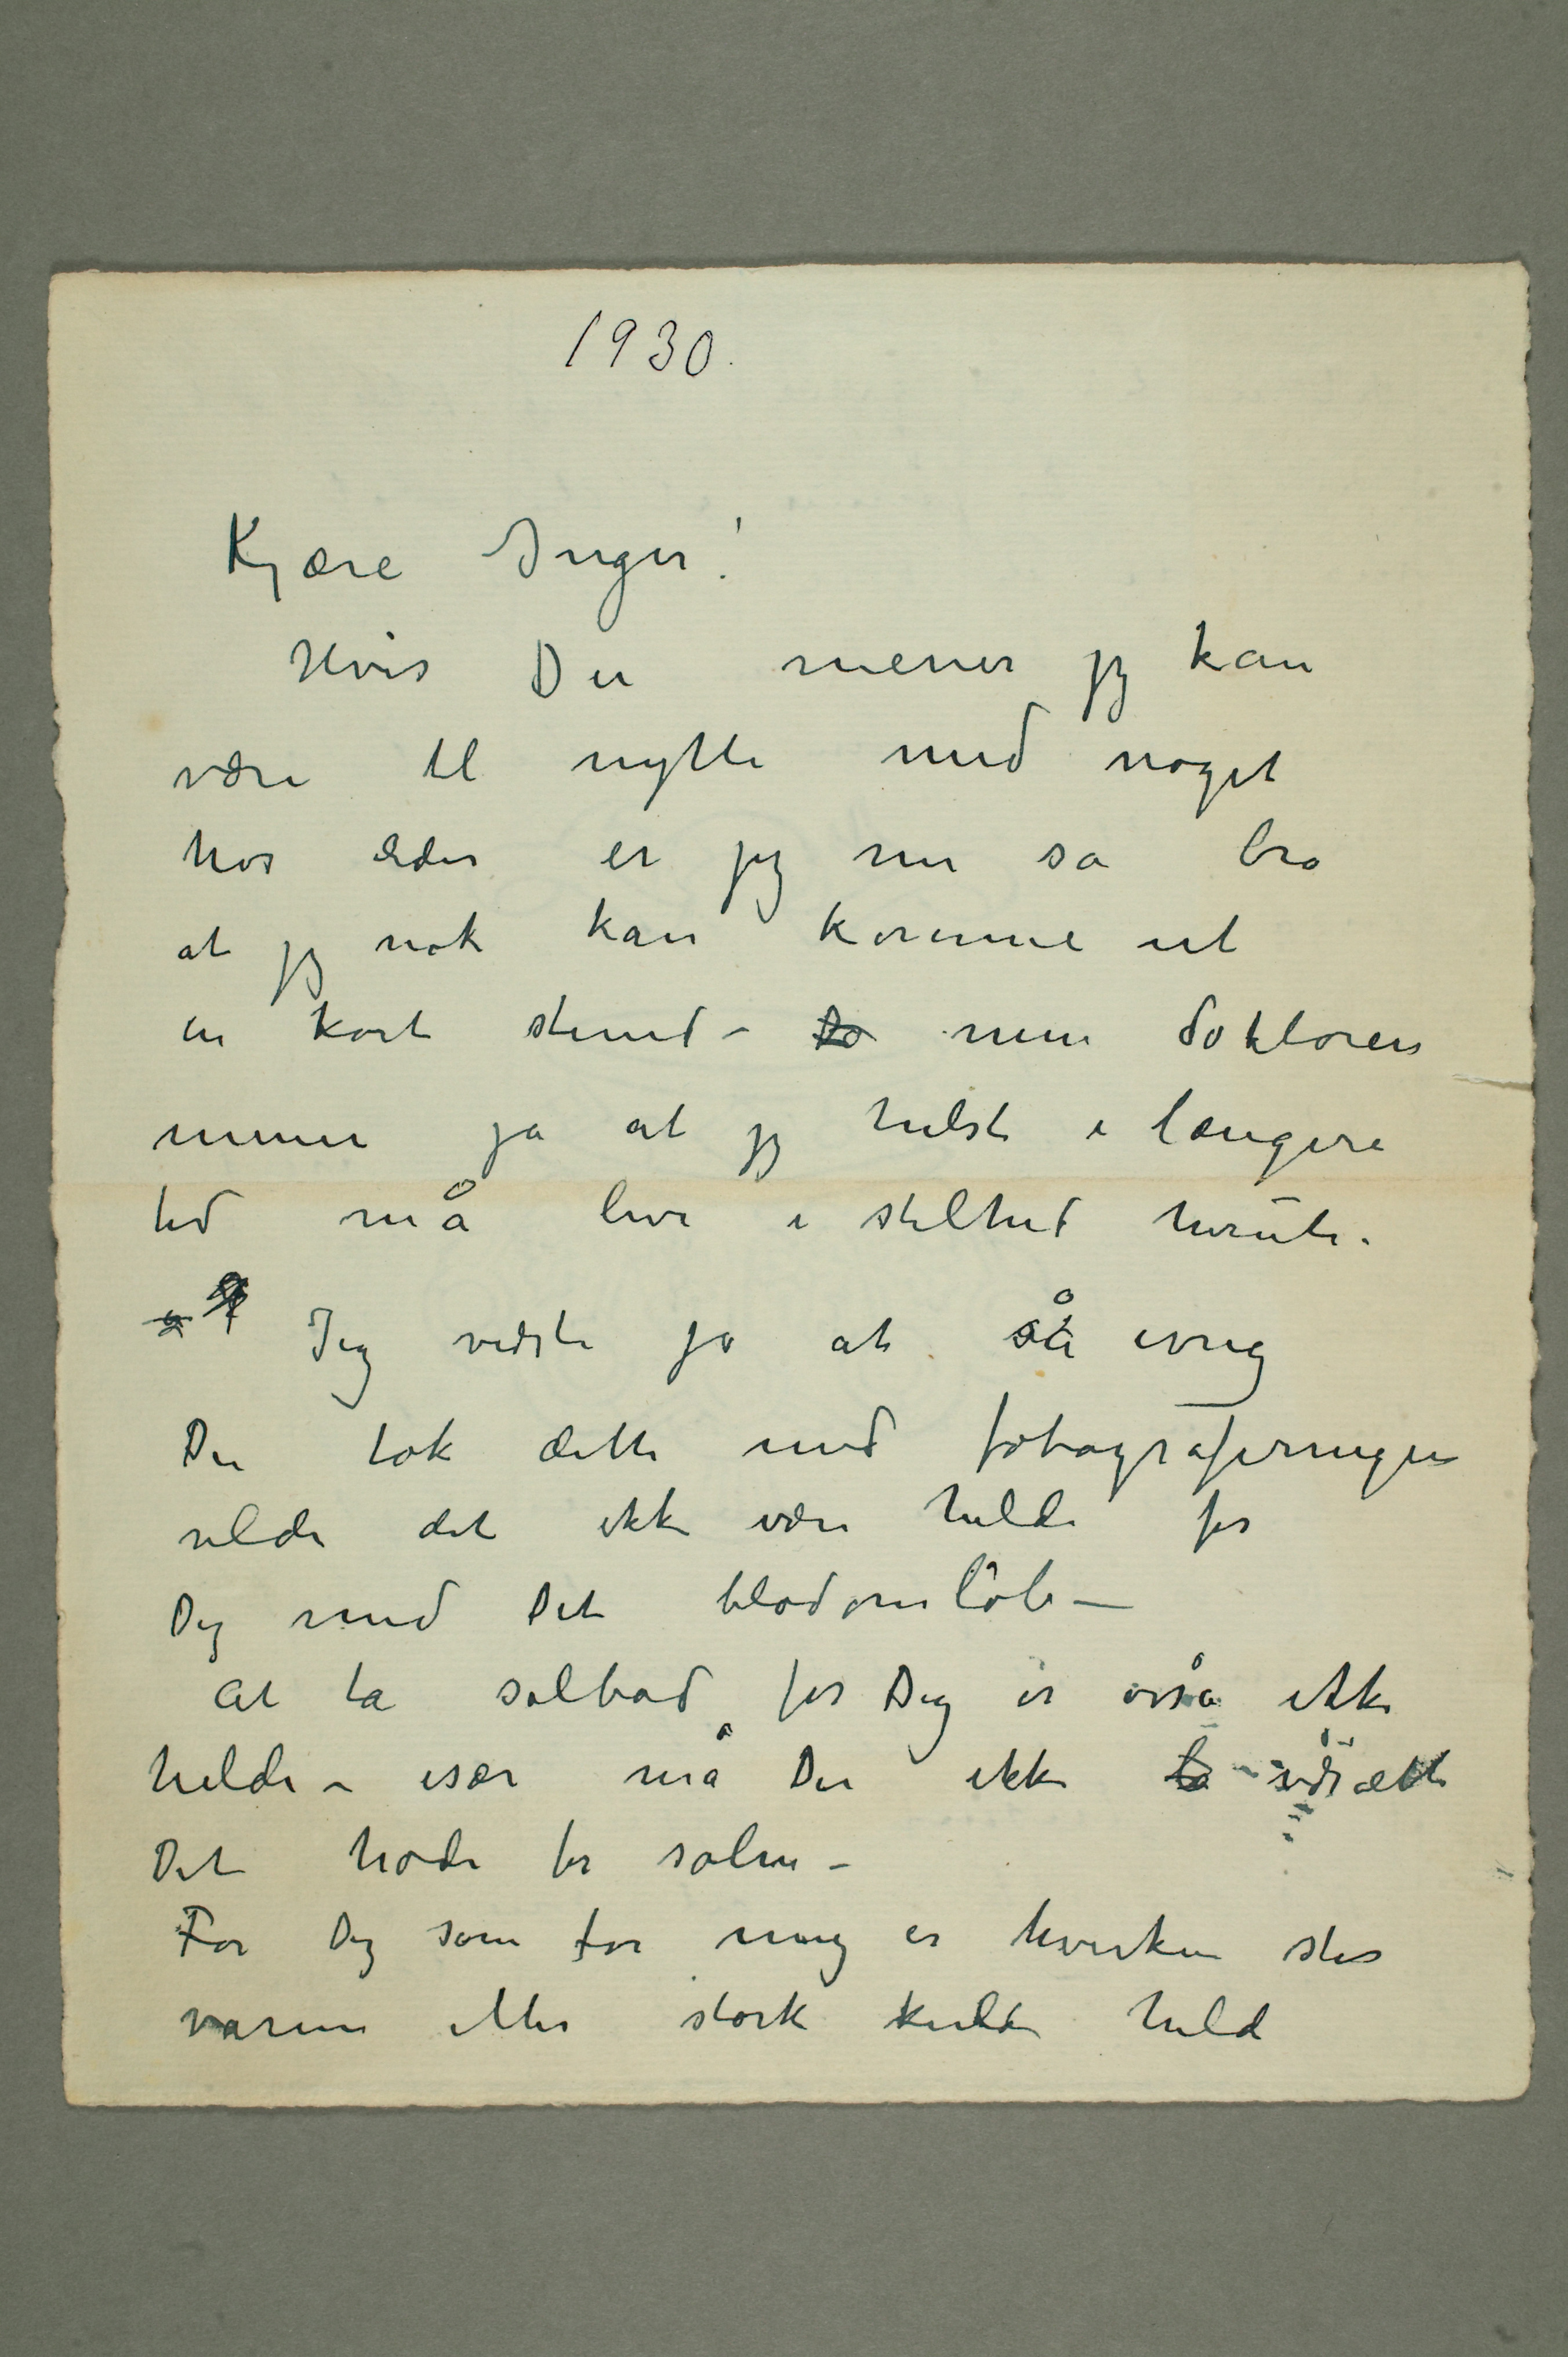 1930.
Kjære Inger!
Hvis Du mener jeg kan
være til nytte med noget
hos eder er jeg nu så bra
at jeg nok kan komme ut
en kort stund – Do men doktoren
mener ja at jeg helst i længere
tid må leve i stilhed herute.
Jeg vidste jo at så ivrig
Du tok dette med fotograferingen
vilde det ikke være heldi for
Dig med Dit blodomløb –
At ta solbad for Dig er osså ikke
heldi – især må Du ikke ta udsætte
Dit hode for solen –
For Dig som for mig er hverken stor
varme eller stærk kulde held